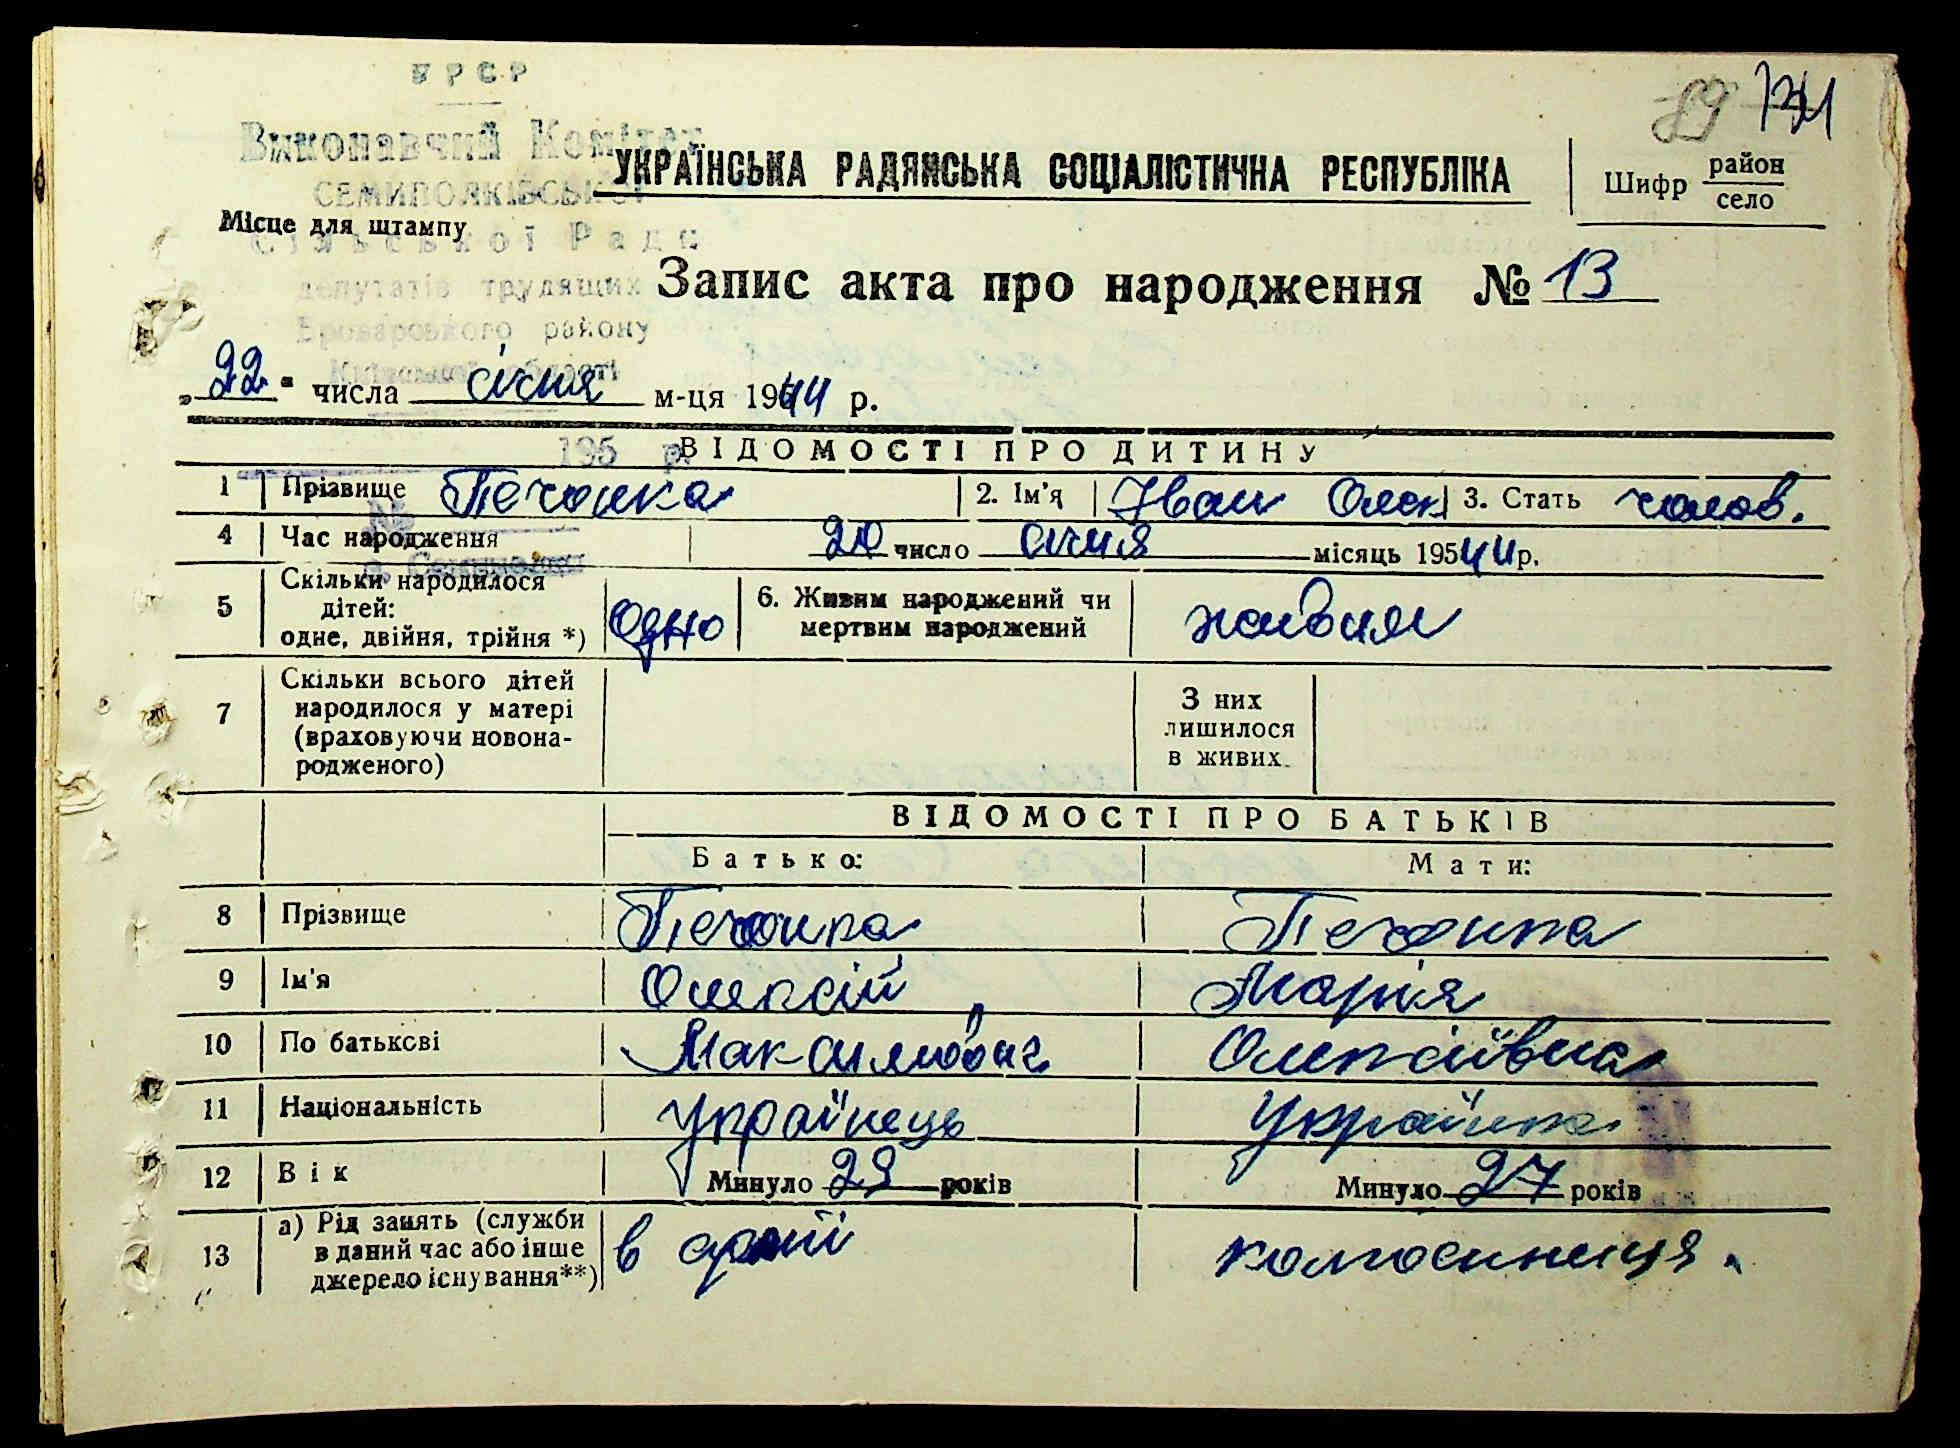 УРСР
89 134
Виконавчий Комітет
УКРАЇНСЬКА РАДЯНСЬКА СОЦІАЛІСТИЧНА РЕСПУБЛІКА
Шифр район
село
СЕМИПОЛКІВСЬКОЇ
Місце для штампу
Сільської Ради
депутатів трудящих
Запис акта про народження № 13
Броварського району
Київської області
„22" числа січня м-ця 1944 р.
195 р.
ВІДОМОСТІ ПРО ДИТИНУ
1 Прізвище Печонка 2. Ім'я Іван Олек 3. Стать чолов.
4 Час народження 20 число січня місяць 195 44 р.
5 Скільки народилося
дітей:
одне, двійня, трійня *) Одно 6. Живим народжений чи
мертвим народжений живим
7 Скільки всього дітей
народилося у матері
(враховуючи новона-
родженого)
З них
лишилося
в живих
ВІДОМОСТІ ПРО БАТЬКІВ
Батько: Мати:
8 Прізвище Печонка Печонка
9 Ім'я Олексій Марія
10 По батькові Максимович Олексіївна
11 Національність Українець Українка
12 Вік Минуло 29 років Минуло 27 років
13 а) Рід занять (служби
в даний час або інше
джерело існування**) в армії колгоспниця.